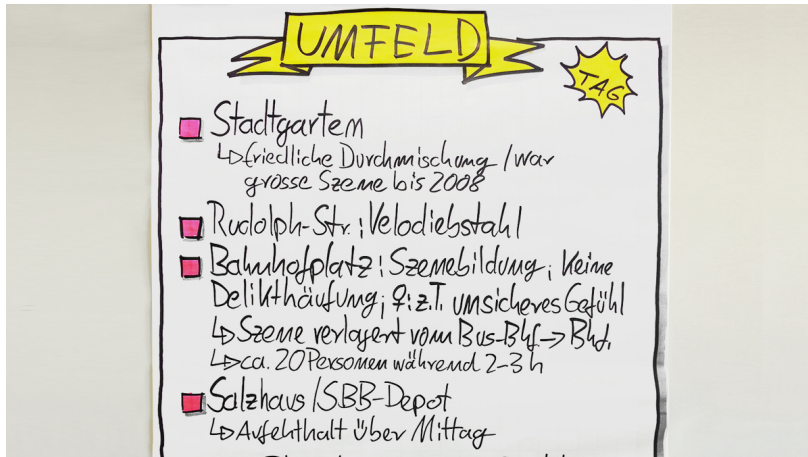 UMFELD
TAG
Stadtgarten
↳ friedliche Durchmischung / war
grosse Szene bis 2008
Rudolph-Str.: Velodiebstahl
Bahnhofplatz: Szenebildung; Keine
Delikthäufung; ♀: z.T. unsicheres Gefühl
↳ Szene verlagert vom Bus-Bhf → Bhf.
↳ ca. 20 Personen während 2-3 h
Salzhaus / SBB-Depot
↳ Aufehthalt über Mittag